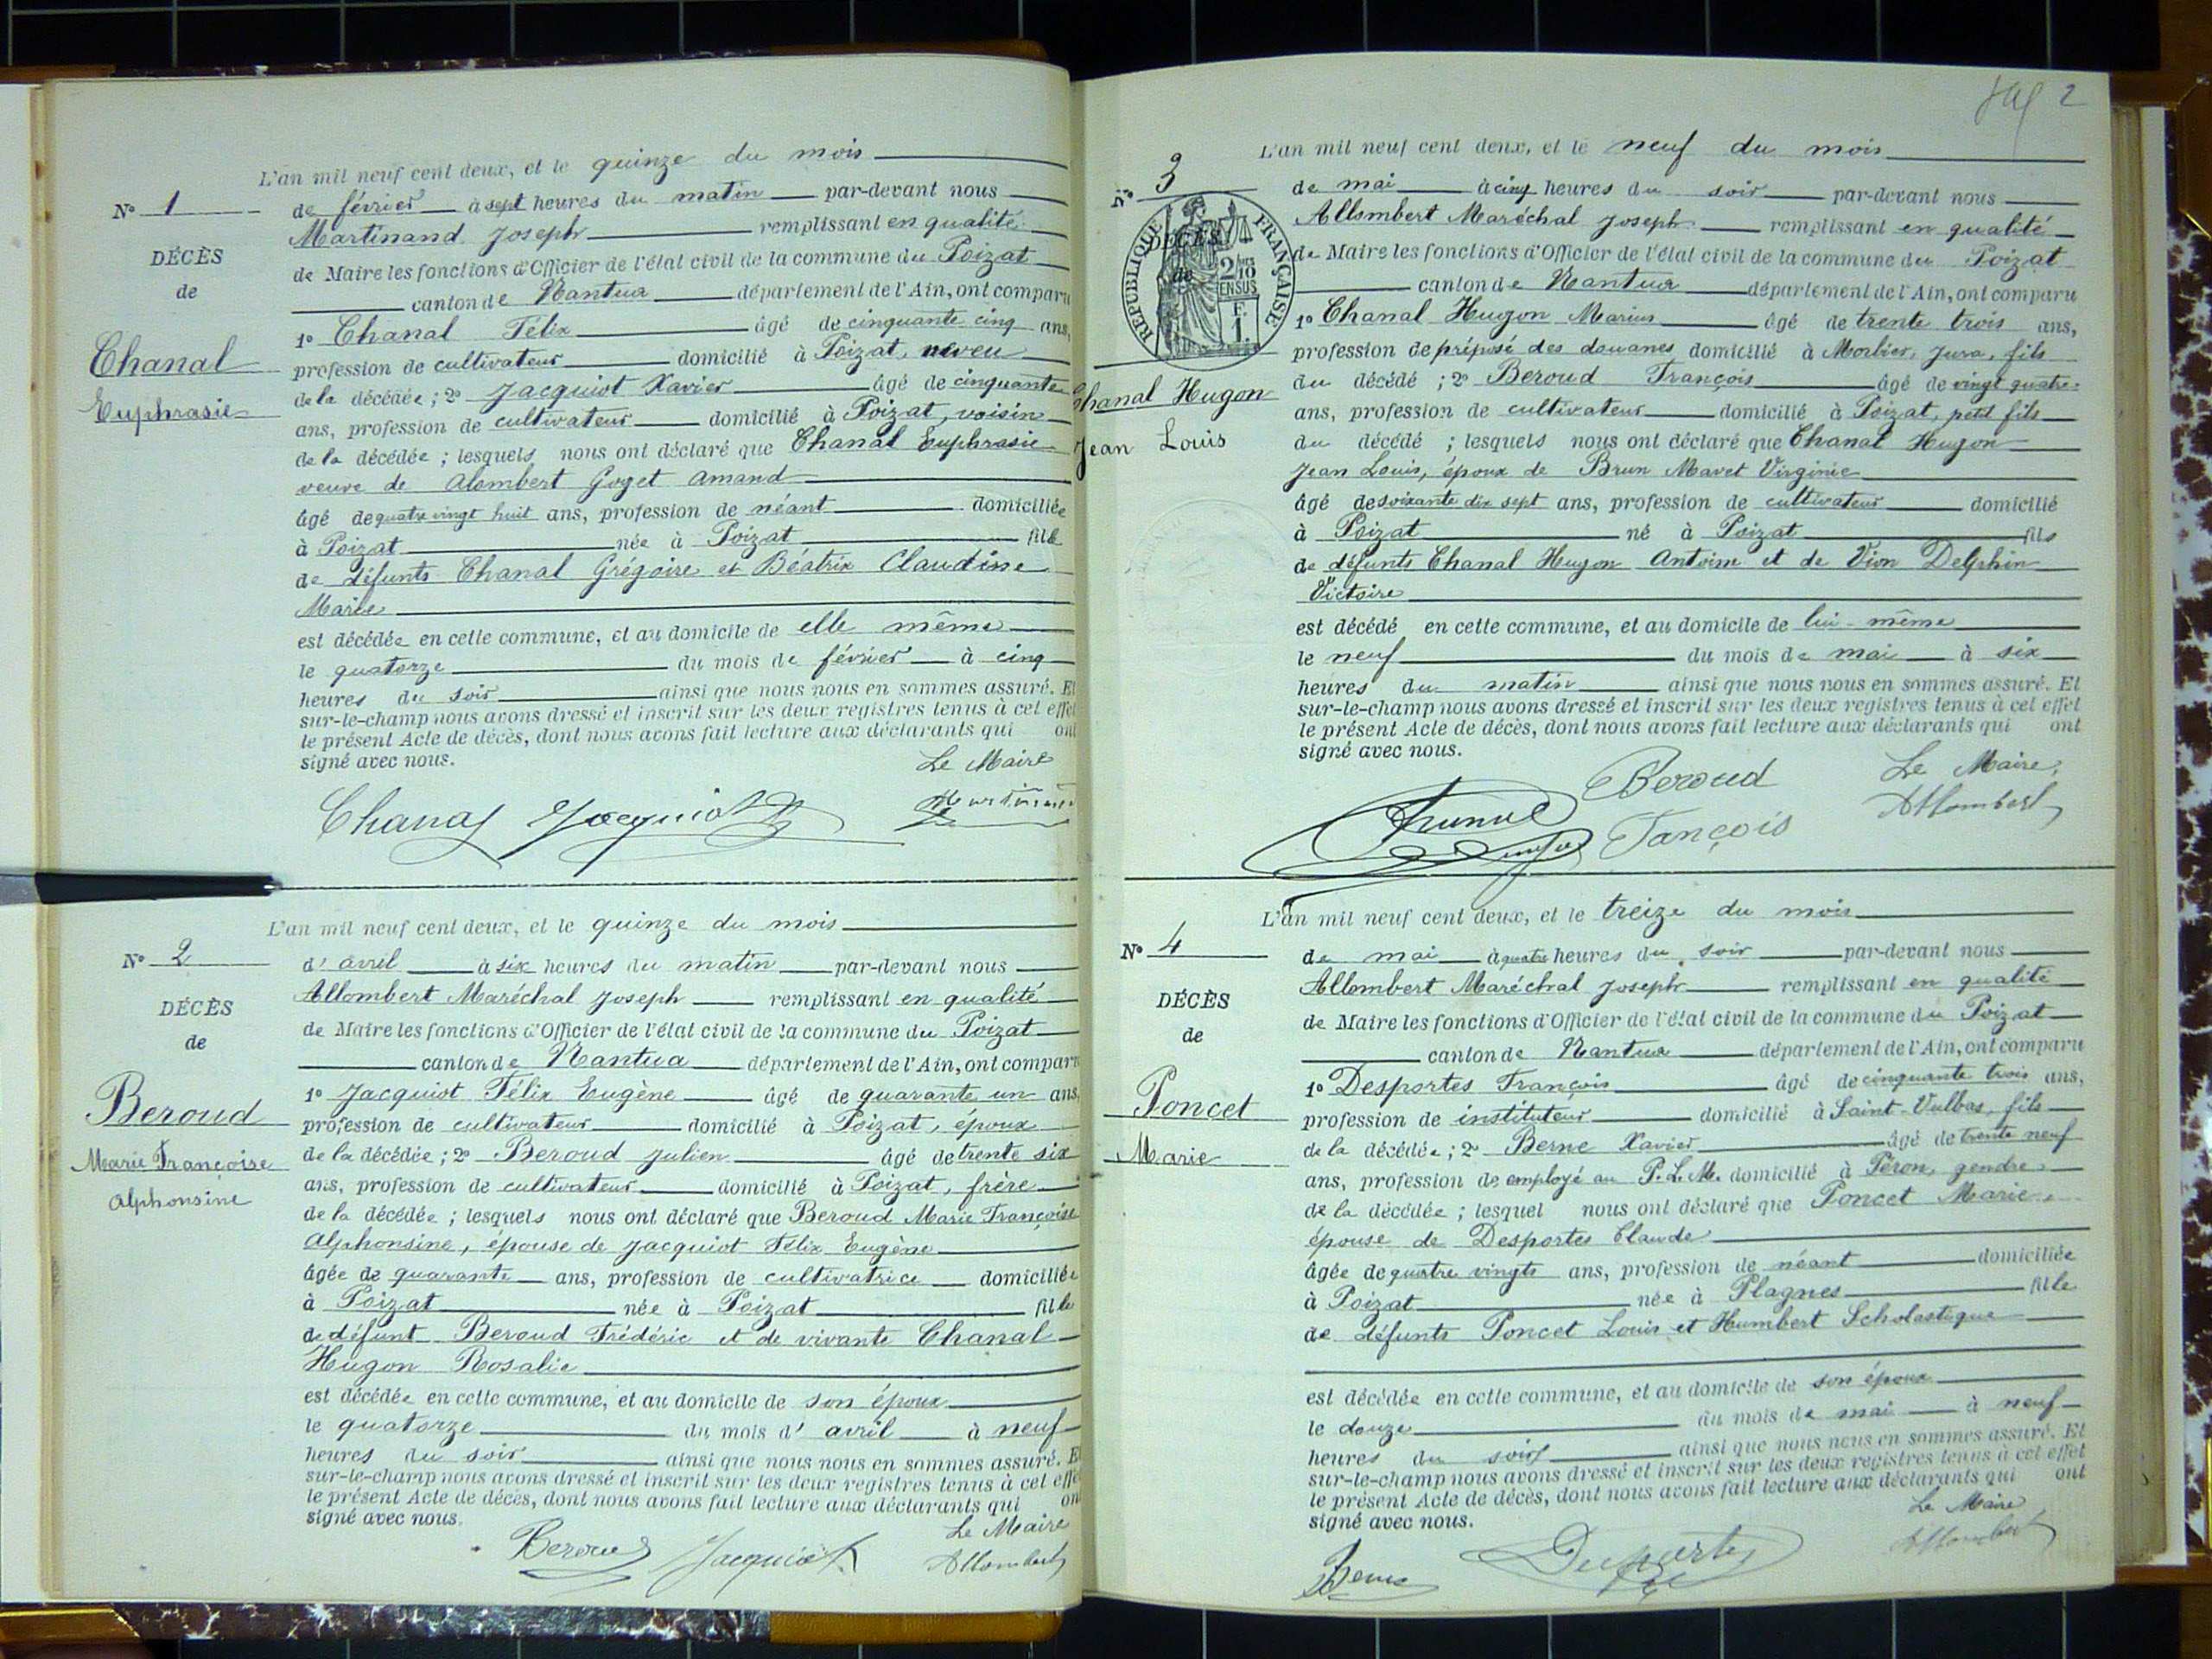 L'an mil neuf cent deux, et le quinze du mois
N° 1
de février à sept heures du matin par-devant nous
Martinand Joseph remplissant en qualité
DÉCÈS
de Maire les fonctions d'Officier de l'état civil de la commune du Poizat
de
canton de Nantua département de l'Ain, ont comparu
1° Chanal Félix âgé de cinquante cinq ans,
Chanal
profession de cultivateur domicilié à Poizat, neveu
de la décédée ; 2° Jacquiot Xavier âgé de cinquante
Euphrasie
ans, profession de cultivateur domicilié à Poizat, voisin
de la décédée ; lesquels nous ont déclaré que Chanal Euphrasie
veuve de Alombert Goget Amand
âgé de quatre vingt huit ans, profession de néant domiciliée
à Poizat née à Poizat fille
de défunts Chanal Grégoire et Béatrix Claudine
Marie
est décédée en cette commune, et au domicile de elle même
le quatorze du mois de février à cinq
heures du soir ainsi que nous nous en sommes assuré. Et
sur-le-champ nous avons dressé et inscrit sur les deux registres tenus à cet effet
le présent Acte de décès, dont nous avons fait lecture aux déclarants qui ont
signé avec nous.
Le Maire
Chanal Jacquiot Martinand
L'an mil neuf cent deux, et le quinze du mois
N° 2
d'avril à six heures du matin par-devant nous
Allombert Maréchal Joseph remplissant en qualité
DÉCÈS
de Maire les fonctions d'Officier de l'état civil de la commune du Poizat
de
canton de Nantua département de l'Ain, ont comparu
1° Jacquiot Félix Eugène âgé de quarante un ans,
Beroud
profession de cultivateur domicilié à Poizat, époux
de la décédée ; 2° Beroud Julien âgé de trente six
Marie Françoise
ans, profession de cultivateur domicilié à Poizat, frère
Alphonsine
de la décédée ; lesquels nous ont déclaré que Beroud Marie Françoise
Alphonsine, épouse de Jacquiot Félix Eugène
âgée de quarante ans, profession de cultivatrice domiciliée
à Poizat née à Poizat fille
de défunt Beroud Frédéric et de vivante Chanal
Hugon Rosalie
est décédée en cette commune, et au domicile de son époux
le quatorze du mois d'avril à neuf
heures du soir ainsi que nous nous en sommes assuré. Et
sur-le-champ nous avons dressé et inscrit sur les deux registres tenus à cet effet
le présent Acte de décès, dont nous avons fait lecture aux déclarants qui ont
signé avec nous.
Le Maire
Beroud Jacquiot Allombert
2
L'an mil neuf cent deux, et le neuf du mois
N° 3
de mai à cinq heures du soir par-devant nous
Allombert Maréchal Joseph remplissant en qualité
DÉCÈS
de
RÉPUBLIQUE FRANÇAISE
2/10
EN SUS
F.
1.
de Maire les fonctions d'Officier de l'état civil de la commune du Poizat
canton de Nantua département de l'Ain, ont comparu
1° Chanal Hugon Marius âgé de trente trois ans,
profession de préposé des douanes domicilié à Morbier, Jura, fils
Chanal Hugon
du décédé ; 2° Beroud François âgé de vingt quatre
ans, profession de cultivateur domicilié à Poizat, petit fils
Jean Louis
du décédé ; lesquels nous ont déclaré que Chanal Hugon
Jean Louis, époux de Brun Mavet Virginie
âgé de soixante dix sept ans, profession de cultivateur domicilié
à Poizat né à Poizat fils
de défunts Chanal Hugon Antoine et de Vion Delphin
Victoire
est décédé en cette commune, et au domicile de lui-même
le neuf du mois de mai à six
heures du matin ainsi que nous nous en sommes assuré. Et
sur-le-champ nous avons dressé et inscrit sur les deux registres tenus à cet effet
le présent Acte de décès, dont nous avons fait lecture aux déclarants qui ont
signé avec nous.
Beroud
Le Maire,
François
Allombert
L'an mil neuf cent deux, et le treize du mois
N° 4
de mai à quatre heures du soir par-devant nous
Allombert Maréchal Joseph remplissant en qualité
DÉCÈS
de Maire les fonctions d'Officier de l'état civil de la commune du Poizat
de
canton de Nantua département de l'Ain, ont comparu
1° Desportes François âgé de cinquante trois ans,
Poncet
profession de instituteur domicilié à Saint-Vulbas, fils
Marie
de la décédée ; 2° Berne Xavier âgé de trente neuf
ans, profession de employé au P.L.M. domicilié à Péron, gendre
de la décédée ; lesquel nous ont déclaré que Poncet Marie
épouse de Desportes Claude
âgée de quatre vingts ans, profession de néant domiciliée
à Poizat née à Plagnes fille
de défunts Poncet Louis et Humbert Scholastique
est décédée en cette commune, et au domicile de son époux
le douze du mois de mai à neuf
heures du soir ainsi que nous nous en sommes assuré. Et
sur-le-champ nous avons dressé et inscrit sur les deux registres tenus à cet effet
le présent Acte de décès, dont nous avons fait lecture aux déclarants qui ont
signé avec nous.
Le Maire
Berne Desportes Allombert